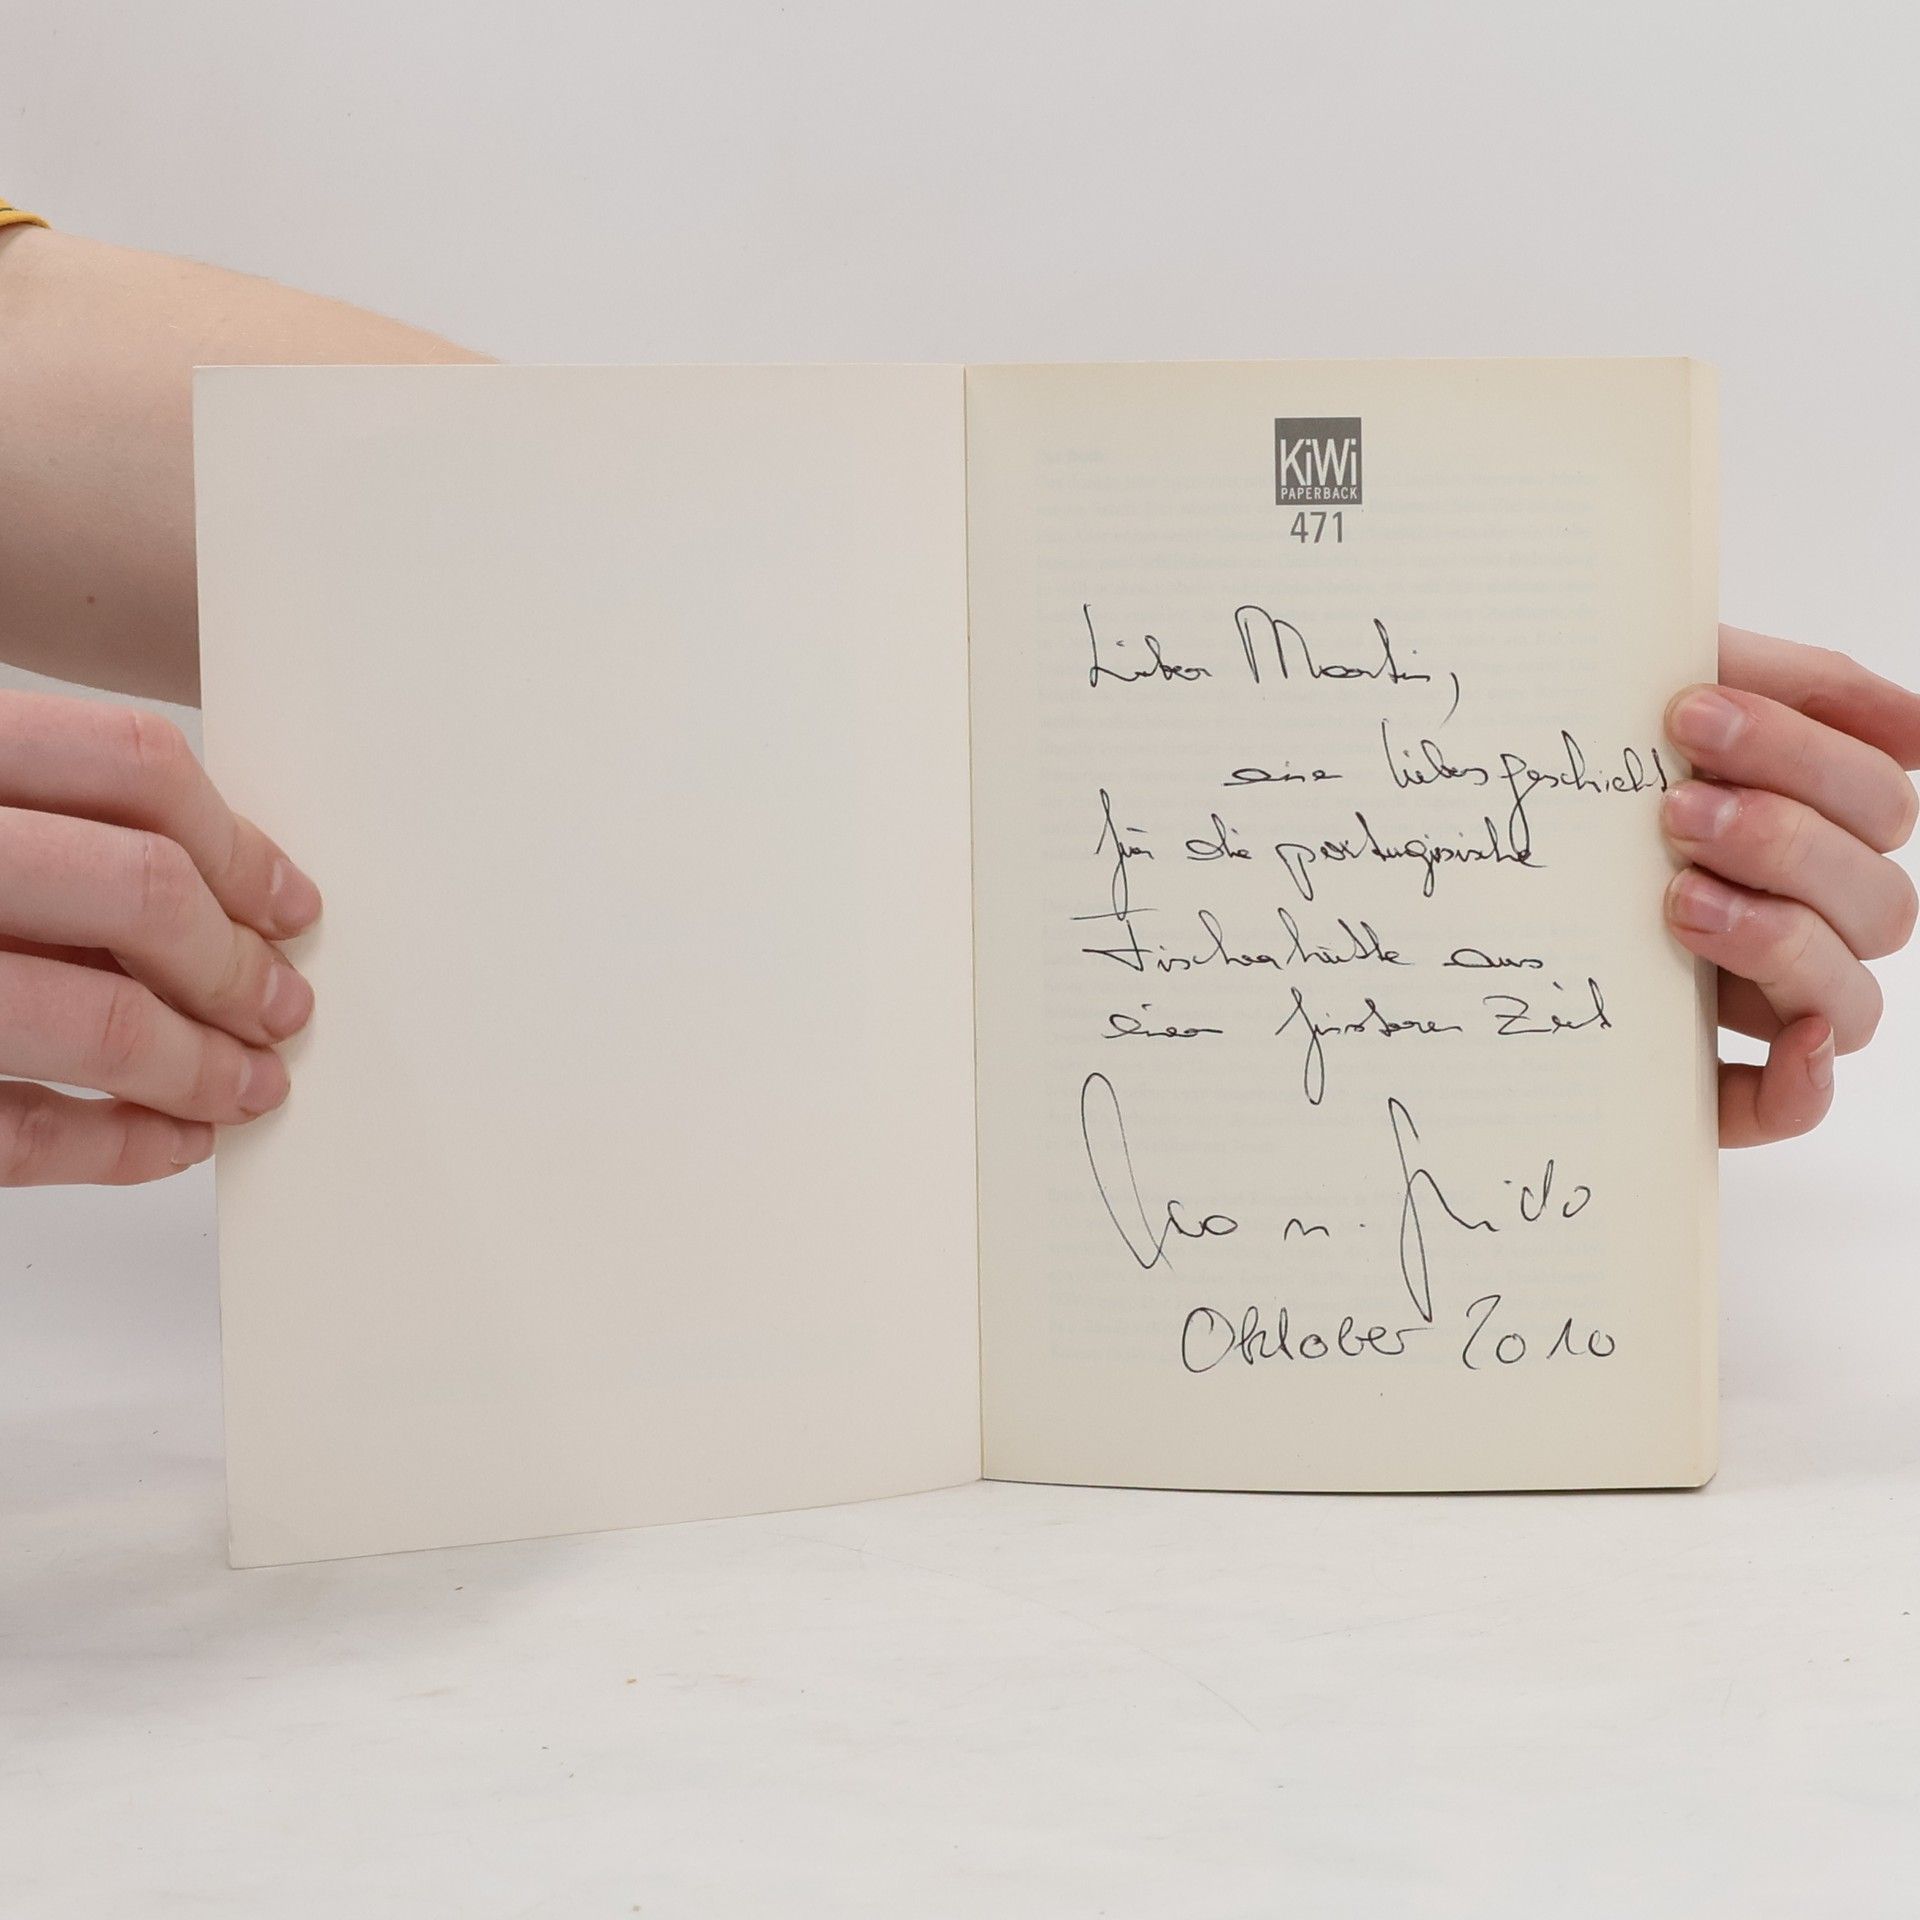 KiWi
PAPERBACK
471
Lieber Martin,
eine Liebesgeschicht
für die portugisische
Fischerhütte aus
einer finsteren Zeit
n. Guido
Oktober 2010